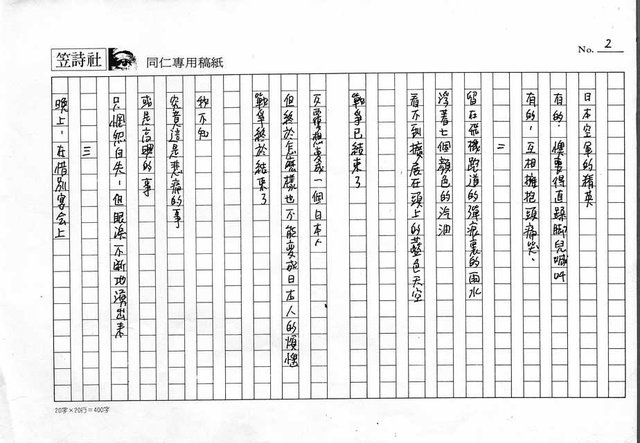 笠詩社
同仁專用稿紙
No. 2
日本空軍的精英
有的，懊喪得直蹂脚兒喊叫
有的，互相擁抱頭痛哭，
二
留在飛機跑道的彈痕裏的雨水
浮着七個顏色的汽油
看不到擴展在頭上的藍色天空
戰爭已結束了
又要想變成一個日本人
但終於怎麼樣也不能變成日本人的懊惱
戰爭終於結束了
我不知
究竟這是悲痛的事
或是高興的事
只惘然自失，但眼淚不斷地湧出來
三
晚上，在惜別宴会上
20字×20行=400字